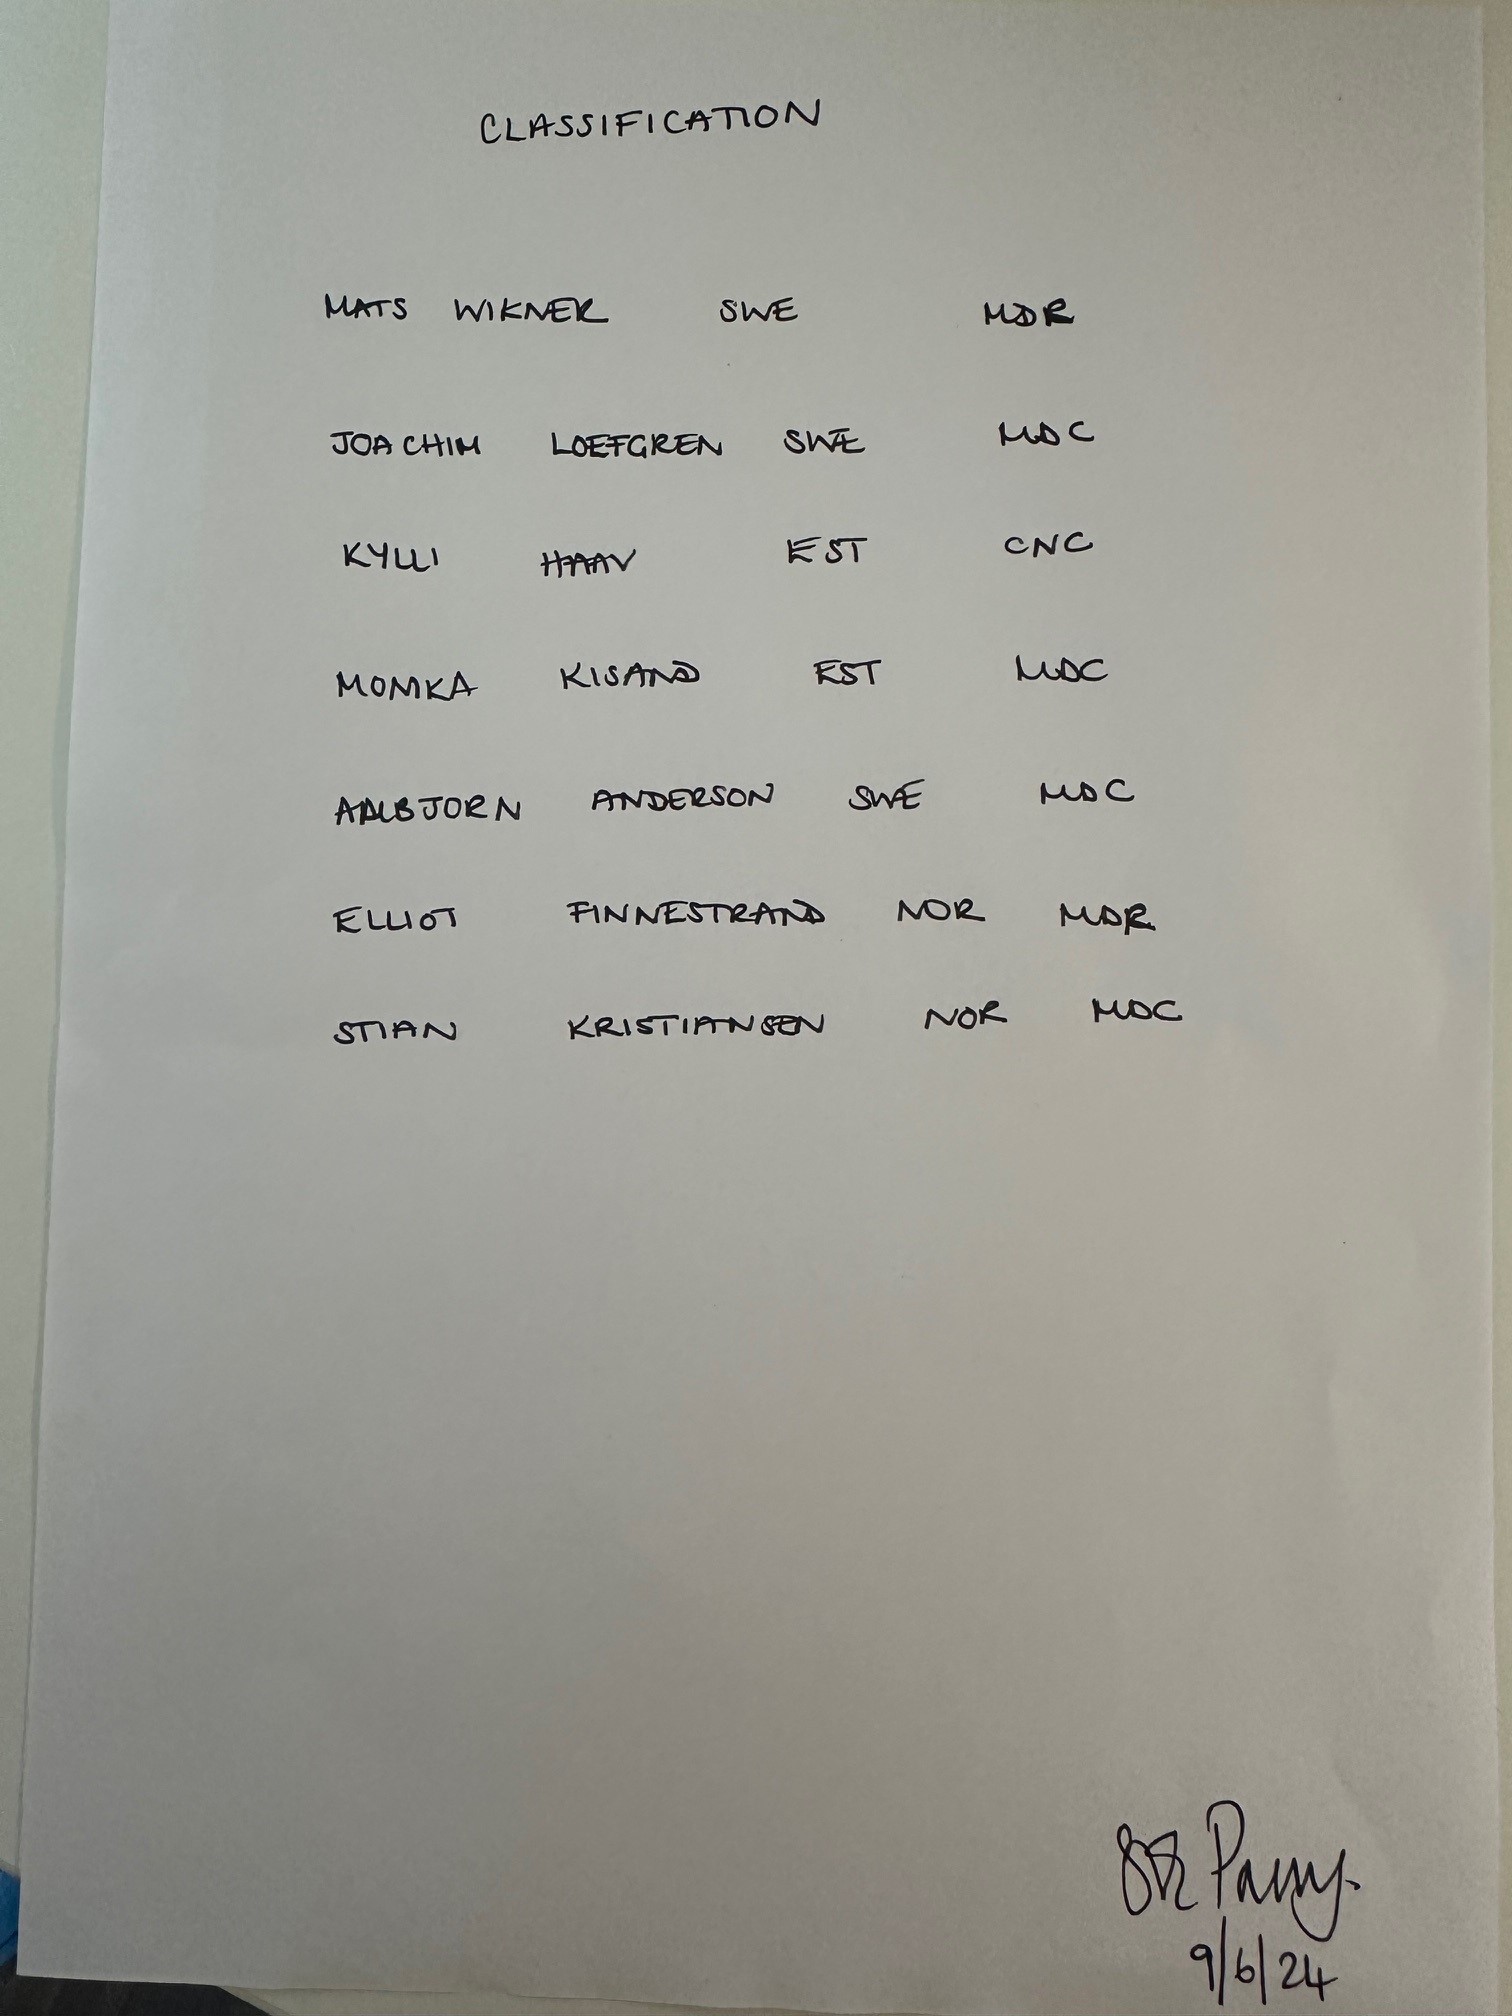 CLASSIFICATION
MATS WIKNER SWE MDR
JOACHIM LOEFGREN SWE MDC
KYLLI HAAV EST CNC
MONIKA KISAND EST MDC
ANDERSON SWE MDC
ELLIOT FINNESTRAND NOR MDR
STIAN KRISTIANSEN NOR MDC
Parry.
9/6/24